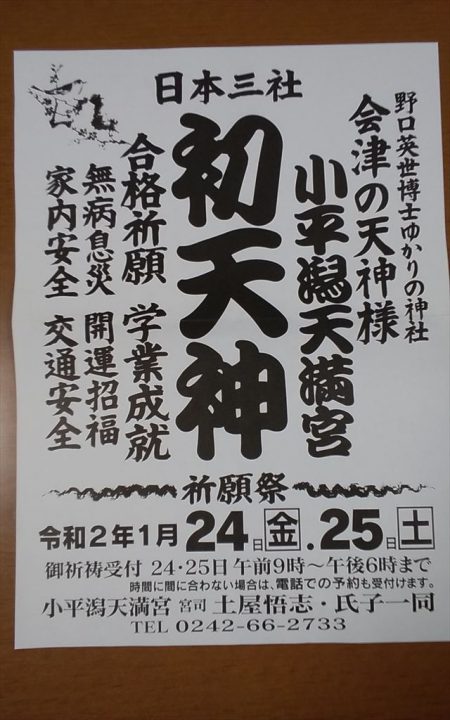 日本三社
野口英世博士ゆかりの神社
会津の天神様
小平潟天満宮
初天神
合格祈願 学業成就
無病息災 開運招福
家内安全 交通安全
祈願祭
令和2年1月24日金.25日土
御祈祷受付 24・25日午前9時～午後6時まで
時間に間に合わない場合は、電話での予約も受付けます。
小平潟天満宮 宮司 土屋悟志・氏子一同
TEL 0242-66-2733